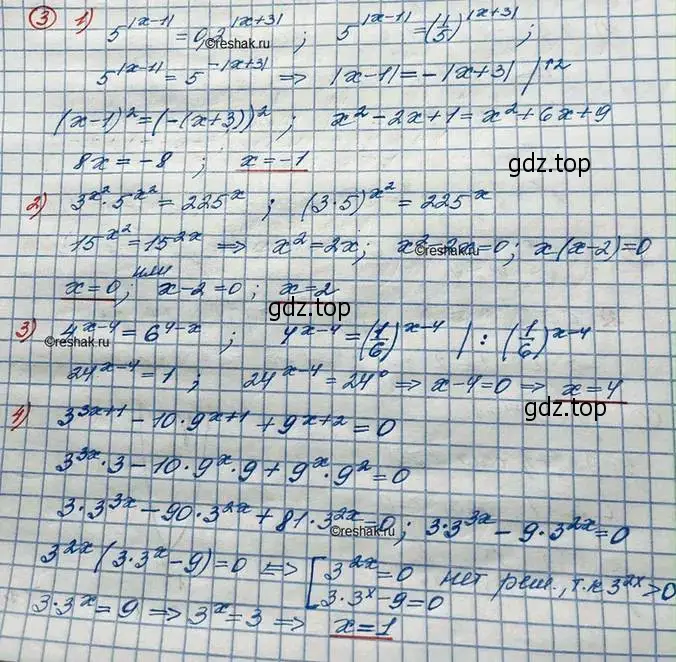 3 1) 5^|x-1| = 0,2^|x+3| ; 5^|x-1| = (1/5)^|x+3| ;
©reshak.ru
5^|x-1| = 5^-|x+3| ⇒ |x-1| = -|x+3| |↑2
(x-1)² = (-(x+3))² ; x² - 2x + 1 = x² + 6x + 9
8x = -8 ; x = -1
gdz.top
2) 3^x² · 5^x² = 225^x ; (3·5)^x² = 225^x
15^x² = 15^2x ⇒ x² = 2x ; x² - 2x = 0 ; x(x-2) = 0
©reshak.ru
x = 0 ; или x - 2 = 0 ; x = 2
gdz.top
3) 4^x-4 = 6^4-x ; 4^x-4 = (1/6)^x-4 | : (1/6)^x-4
©reshak.ru
24^x-4 = 1 ; 24^x-4 = 24^0 ⇒ x-4 = 0 ⇒ x = 4
gdz.top
4) 3^3x+1 - 10·9^x+1 + 9^x+2 = 0
3^3x · 3 - 10·9^x · 9 + 9^x · 9² = 0
3·3^3x - 90·3^2x + 81·3^2x = 0 ; 3·3^3x - 9·3^2x = 0
©reshak.ru
3^2x (3·3^x - 9) = 0 ⇔ [ 3^2x = 0 нет реш., т.к 3^2x > 0
3·3^x - 9 = 0
3·3^x = 9 ⇒ 3^x = 3 ⇒ x = 1